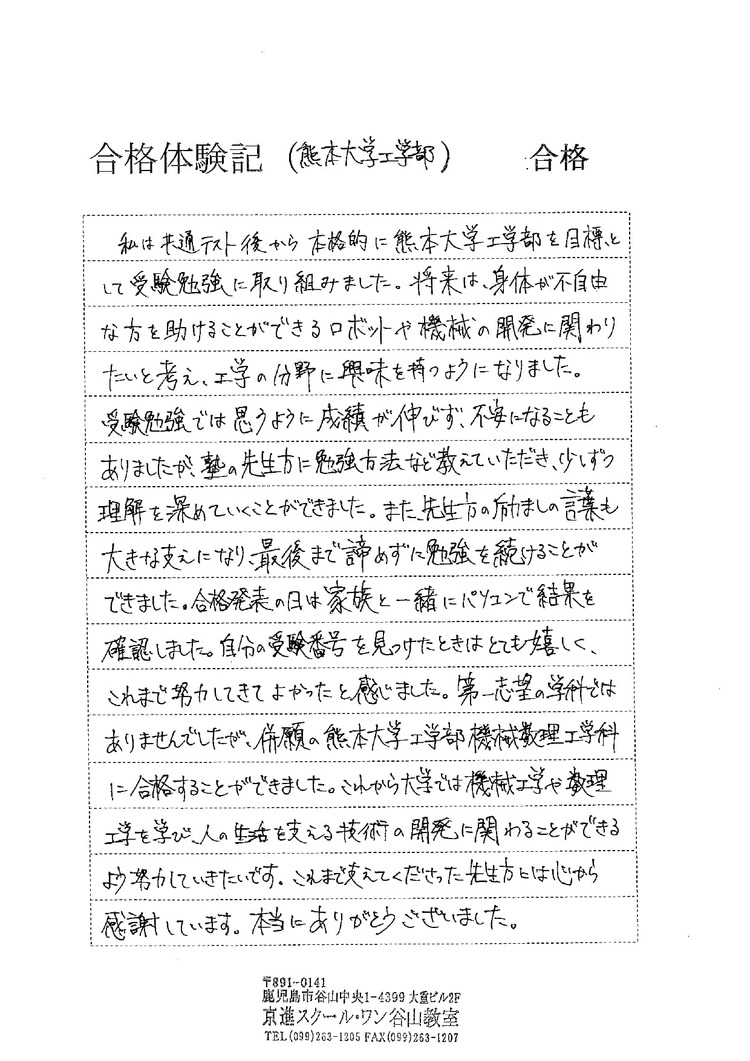 合格体験記 (熊本大学工学部) 合格
私は共通テスト後から本格的に熊本大学工学部を目標と
して受験勉強に取り組みました。将来は、身体が不自由
な方を助けることができるロボットや機械の開発に関わり
たいと考え、工学の分野に興味を持つようになりました。
受験勉強では思うように成績が伸びず、不安になることも
ありましたが、塾の先生方に勉強方法など教えていただき、少しずつ
理解を深めていくことができました。また、先生方の励ましの言葉も
大きな支えになり、最後まで諦めずに勉強を続けることが
できました。合格発表の日は家族と一緒にパソコンで結果を
確認しました。自分の受験番号を見つけたときはとても嬉しく、
これまで努力してきてよかったと感じました。第一志望の学科では
ありませんでしたが、併願の熊本大学工学部機械数理工学科
に合格することができました。これから大学では機械工学や数理
工学を学び、人の生活を支える技術の開発に関わることができる
よう努力していきたいです。これまで支えてくださった先生方には心から
感謝しています。本当にありがとうございました。
〒891-0141
鹿児島市谷山中央1-4399 大重ビル2F
京進スクール・ワン谷山教室
TEL(099)263-1205 FAX(099)263-1207